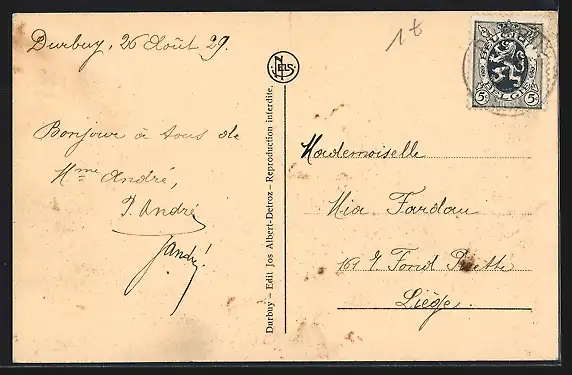 Durbuy, 26 Août 29.
Bonjour à tous de
Mme André,
J. André
J André!
NELS
Durbuy – Edit Jos Albert-Detroz – Reproduction interdite.
1t
BELGIQUE
BELGIE
5 5
Mademoiselle
Mia Fardau
Fond
Liège.